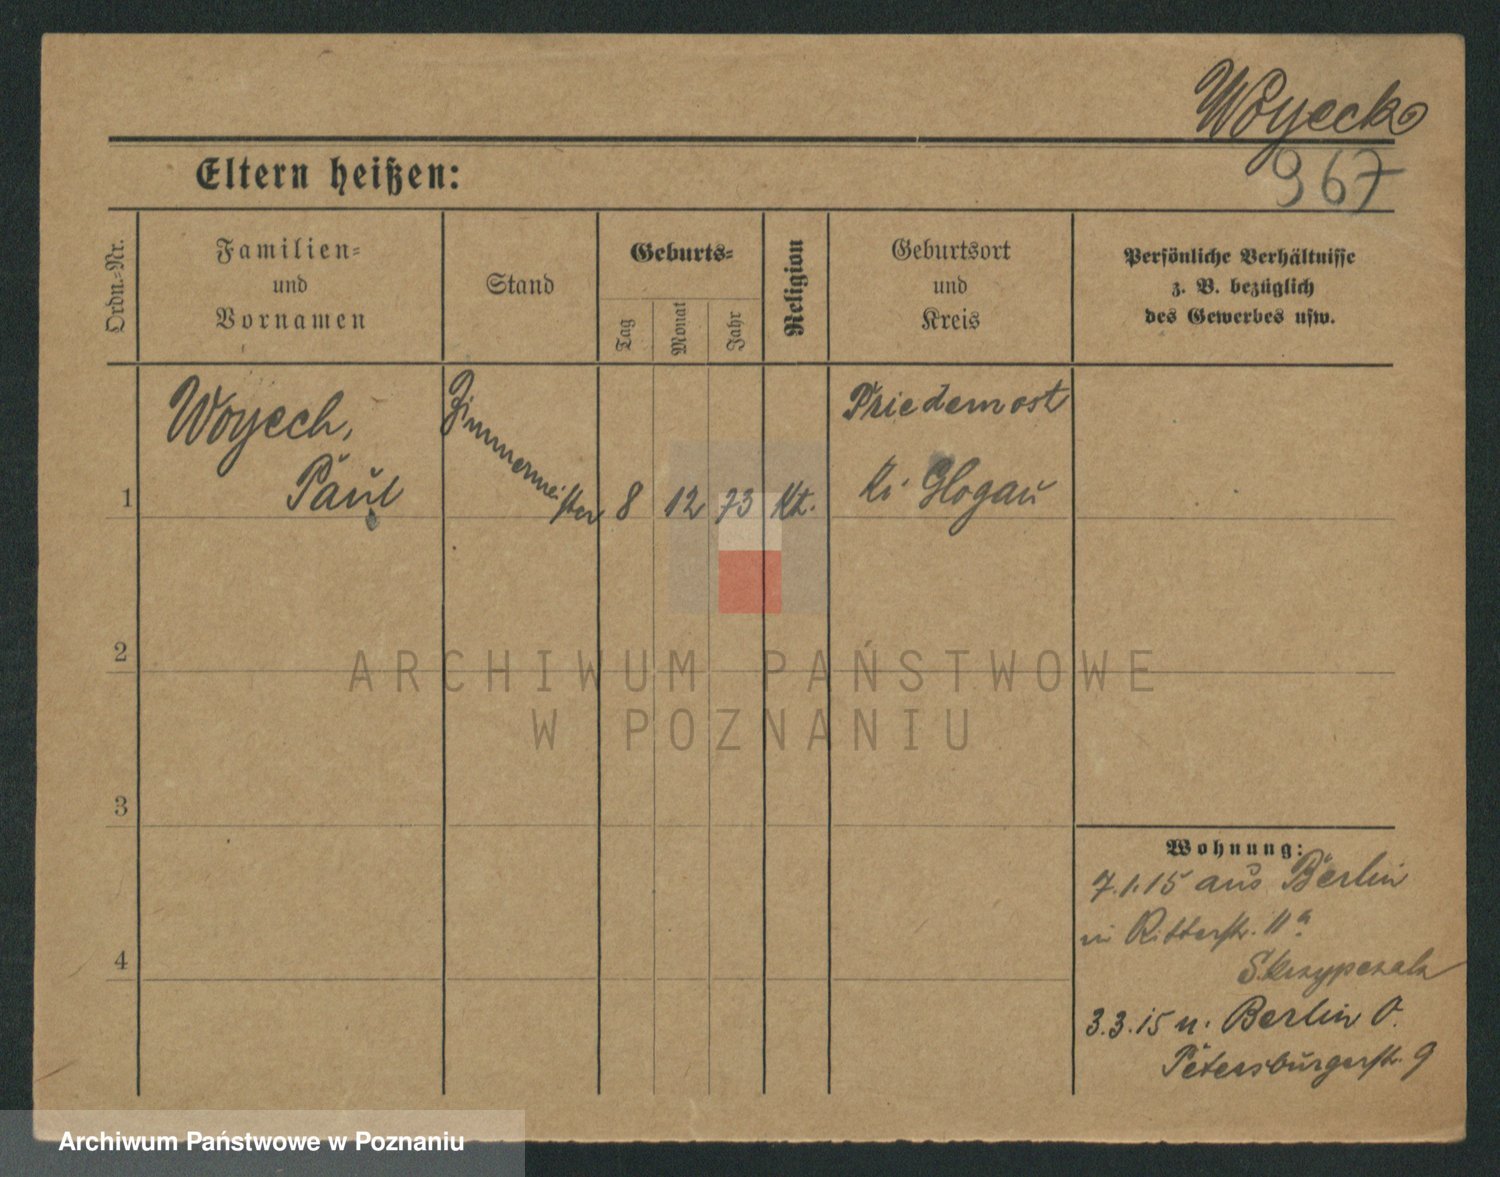 Woyeck
967
Eltern heißen:
Ordn.-Nr.
Familien-
und
Vornamen
Stand
Geburts-
Tag
Monat
Jahr
Religion
Geburtsort
und
Kreis
Persönliche Verhältnisse
z. B. bezüglich
des Gewerbes usw.
1
Woyech,
Paul
Zimmermeister
8
12
73
Kt.
Priedemost
Kr. Glogau
2
ARCHIWUM PAŃSTWOWE
W POZNANIU
3
4
Wohnung:
7.1.15 aus Berlin
in Ritterstr. 11a
Skrzypczak
3.3.15 n. Berlin O.
Petersburgerstr. 9
Archiwum Państwowe w Poznaniu